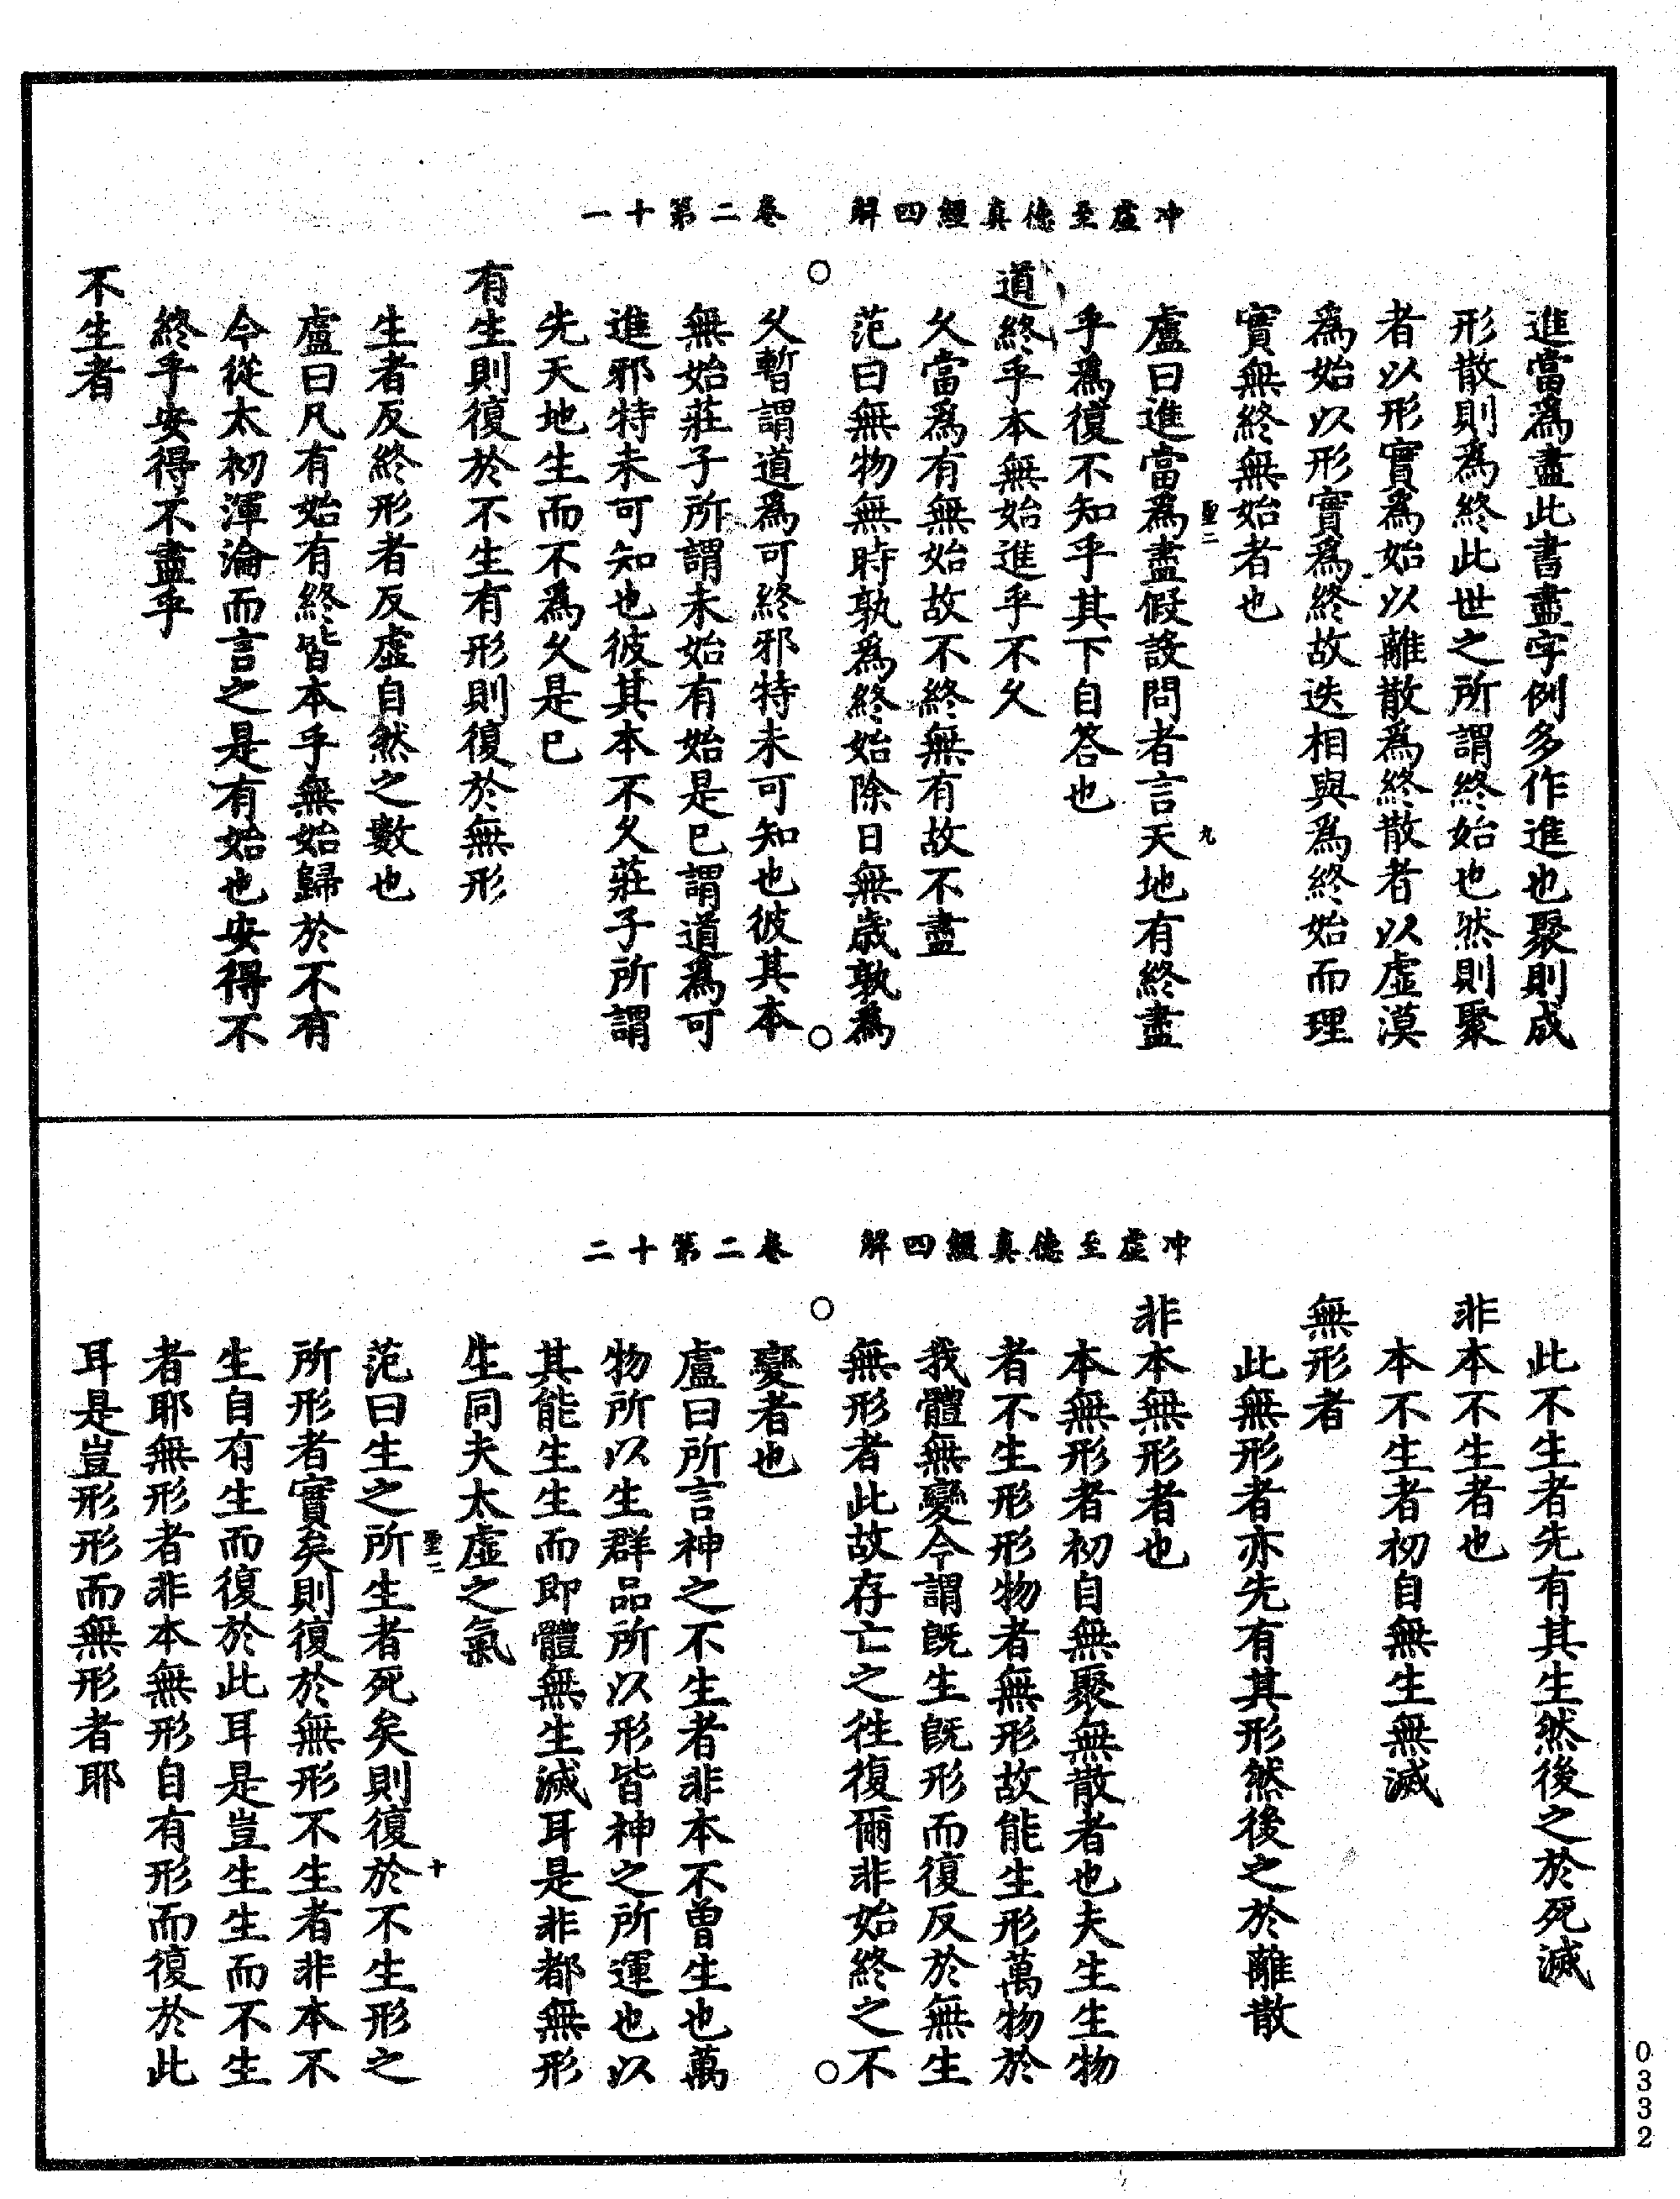 冲虛至德真經四解　卷二第十一
進當爲盡此書盡字例多作進也聚則成
形散則爲終此世之所謂終始也然則聚
者以形實爲始以離散爲終散者以虛漠
爲始以形實爲終故迭相與爲終始而理
實無終無始者也
聖二　九
盧曰進當爲盡假設問者言天地有終盡
乎爲復不知乎其下自答也
道終乎本無始進乎不久
久當爲有無始故不終無有故不盡
范曰無物無時孰爲終始除日無歲孰爲
久暫謂道爲可終邪特未可知也彼其本
無始莊子所謂未始有始是已謂道爲可
進邪特未可知也彼其本不久莊子所謂
先天地生而不爲久是已
有生則復於不生有形則復於無形
生者反終形者反虛自然之數也
盧曰凡有始有終皆本乎無始歸於不有
今從太初渾淪而言之是有始也安得不
終乎安得不盡乎
不生者
冲虛至德真經四解　卷二第十二
此不生者先有其生然後之於死滅
非本不生者也
本不生者初自無生無滅
無形者
此無形者亦先有其形然後之於離散
非本無形者也
本無形者初自無聚無散者也夫生生物
者不生形形物者無形故能生形萬物於
我體無變今謂既生既形而復反於無生
無形者此故存亡之往復爾非始終之不
變者也
盧曰所言神之不生者非本不曾生也萬
物所以生群品所以形皆神之所運也以
其能生生而即體無生滅耳是非都無形
生同夫太虛之氣
聖二　十
范曰生之所生者死矣則復於不生形之
所形者實矣則復於無形不生者非本不
生自有生而復於此耳是豈生生而不生
者耶無形者非本無形自有形而復於此
耳是豈形形而無形者耶
0332